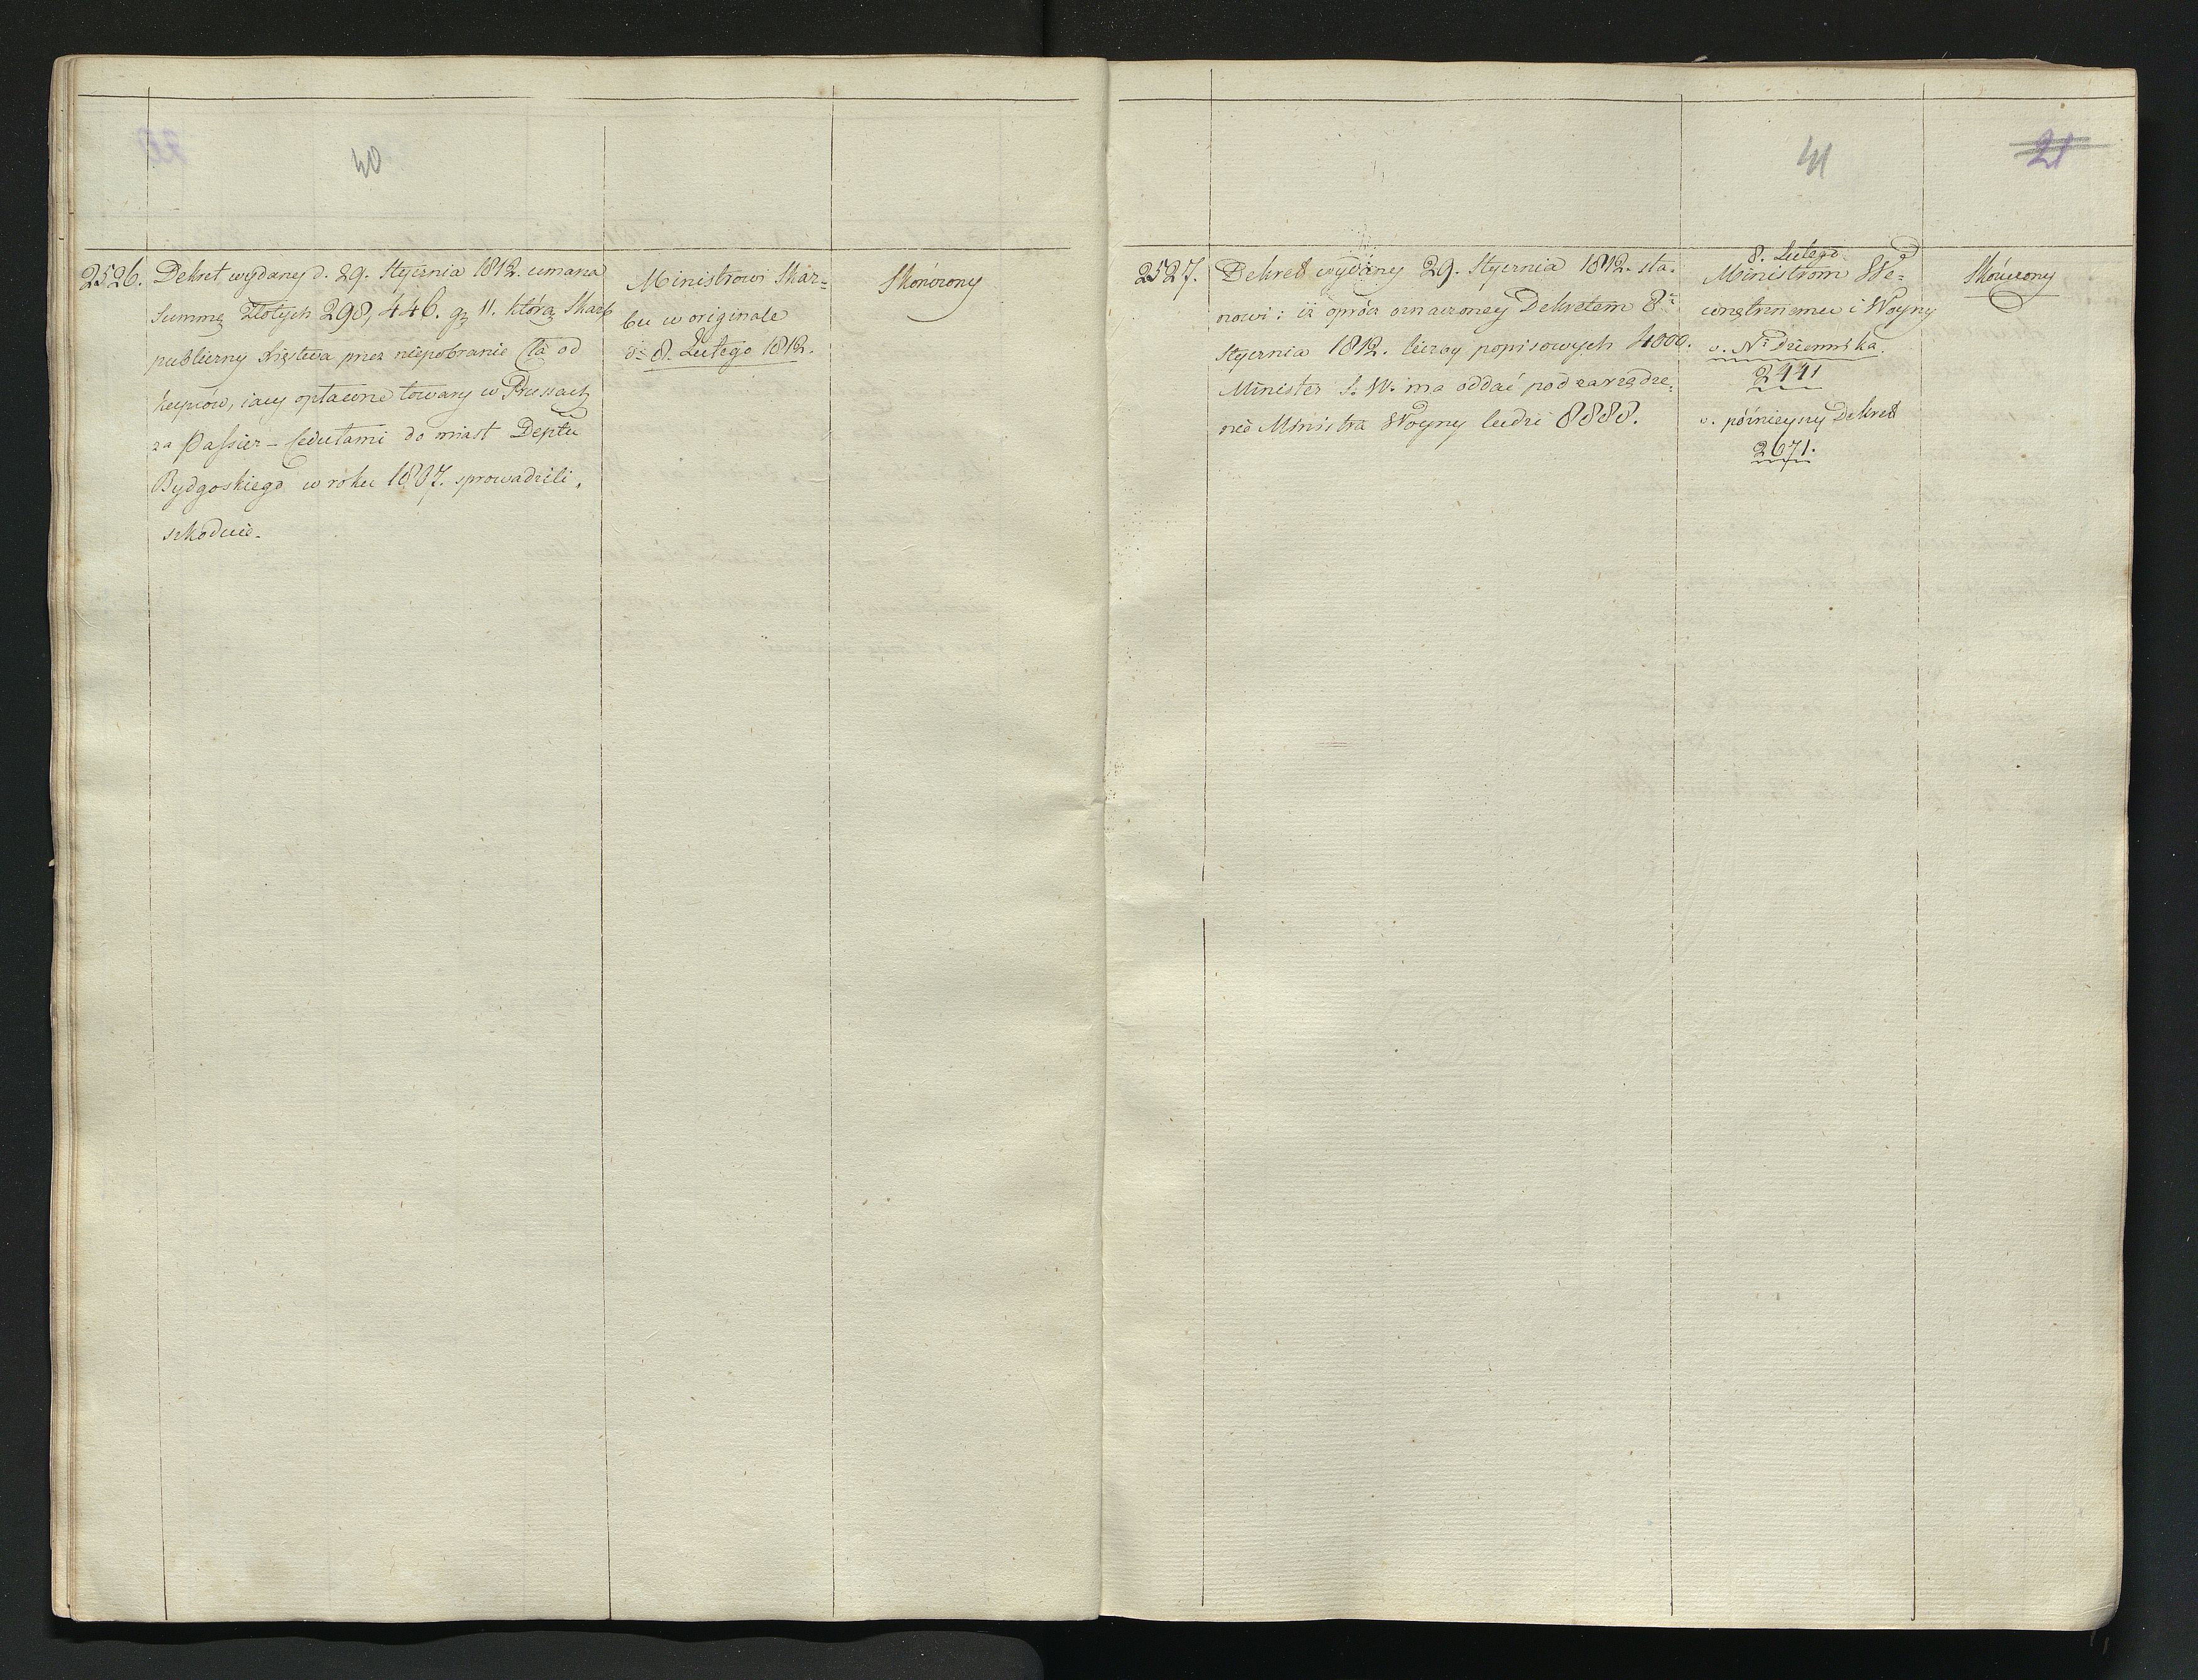 40
2526. Dekret wydany d. 29. Stycznia 1812. umarza
Summę Złotych 298,446. gr 11. którą Skarb
publiczny Xięstwa przez niepobranie Cła od
kupców, iacy opłacone towary w Prussach
za Passier-Cedułami do miast Deptu
Bydgoskiego w roku 1807. sprowadzili,
szkoduie.
Ministrowi Skar=
bu w originale
d: 8. Lutego 1812.
Skończony
41
21
2527. Dekret wydany 29. Stycznia 1812. sta=
nowi: iż oprócz oznaczoney Dekretem 8:
Stycznia 1812. liczby popisowych 4000.
Minister S. W. ma oddać pod zarządze=
nie Ministra Woyny ludzi 8888.
8. Lutego
Ministrom We=
wnętrznemu i Woyny
v. Nr Dziennika
2441
v. późnieyszy Dekret
2671.
Skończony